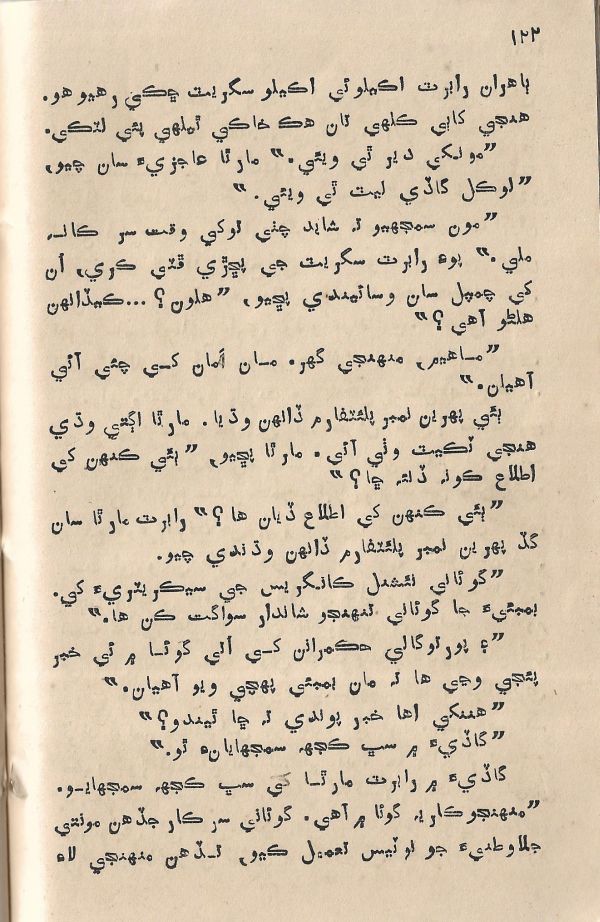 ۱۲۲
ٻاهران رابرٽ اڪيلوئي اڪيلو سگريٽ ڇڪي رهيو هو.
هنجي کاٻي ڪلهي تان هڪ خاڪي ٿيلهي پئي لٽڪي.
”مونکي دير ٿي ويئي.“ مارٿا عاجزيءَ سان چيو،
”لوڪل گاڏي ليٽ ٿي ويئي.“
”مون سمجهيو تہ شايد چٺي توکي وقت سر ڪانہ
ملي.“ پوءِ رابرٽ سگريٽ جي پڇڙي ڦٽي ڪري، اُن
کي چمپل سان وسائيندي پڇيو، ”هلون؟ ...ڪيڏانهن
هلڻو آهي؟“
”ماهيم، منهنجي گهر. مان اَمان کي چئي آئي
آهيان.“
ٻئي پهرين نمبر پليٽفارم ڏانهن وڌيا. مارٿا اڳتي وڌي
هنجي ٽڪيٽ وٺي آئي. مارٿا پڇيو، ”ٻئي ڪنهن کي
اطلاع ڪونہ ڏنہ ڇا؟“
”ٻئي ڪنهن کي اطلاع ڏيان ها؟“ رابرٽ مارٿا سان
گڏ پهرين نمبر پليٽفارم ڏانهن وڌندي چيو.
”گوئاني نئشنل ڪانگريس جي سيڪريٽريءَ کي.
بمبئيءَ جا گوئاني تنهنجو شاندار سواگت ڪن ها.“
”۽ پورٽوگالي حڪمرانن کي اُتي گوئا ۾ ئي خبر
پئجي وڃي ها تہ مان بمبئي پهچي ويو آهيان.“
”هننکي اها خبر پوندي تہ ڇا ٿيندو؟“
”گاڏيءَ ۾ سڀ ڪجهہ سمجهايانءِ ٿو.“
گاڏيءَ ۾ رابرٽ مارٿا کي سڀ ڪجهہ سمجهايو.
”منهنجو ڪاريہ گوئا ۾ آهي. گوئاني سرڪار جڏهن مونتي
جلاوطنيءَ جو نوٽيس تعميل ڪيو، تڏهن منهنجي لاءِ